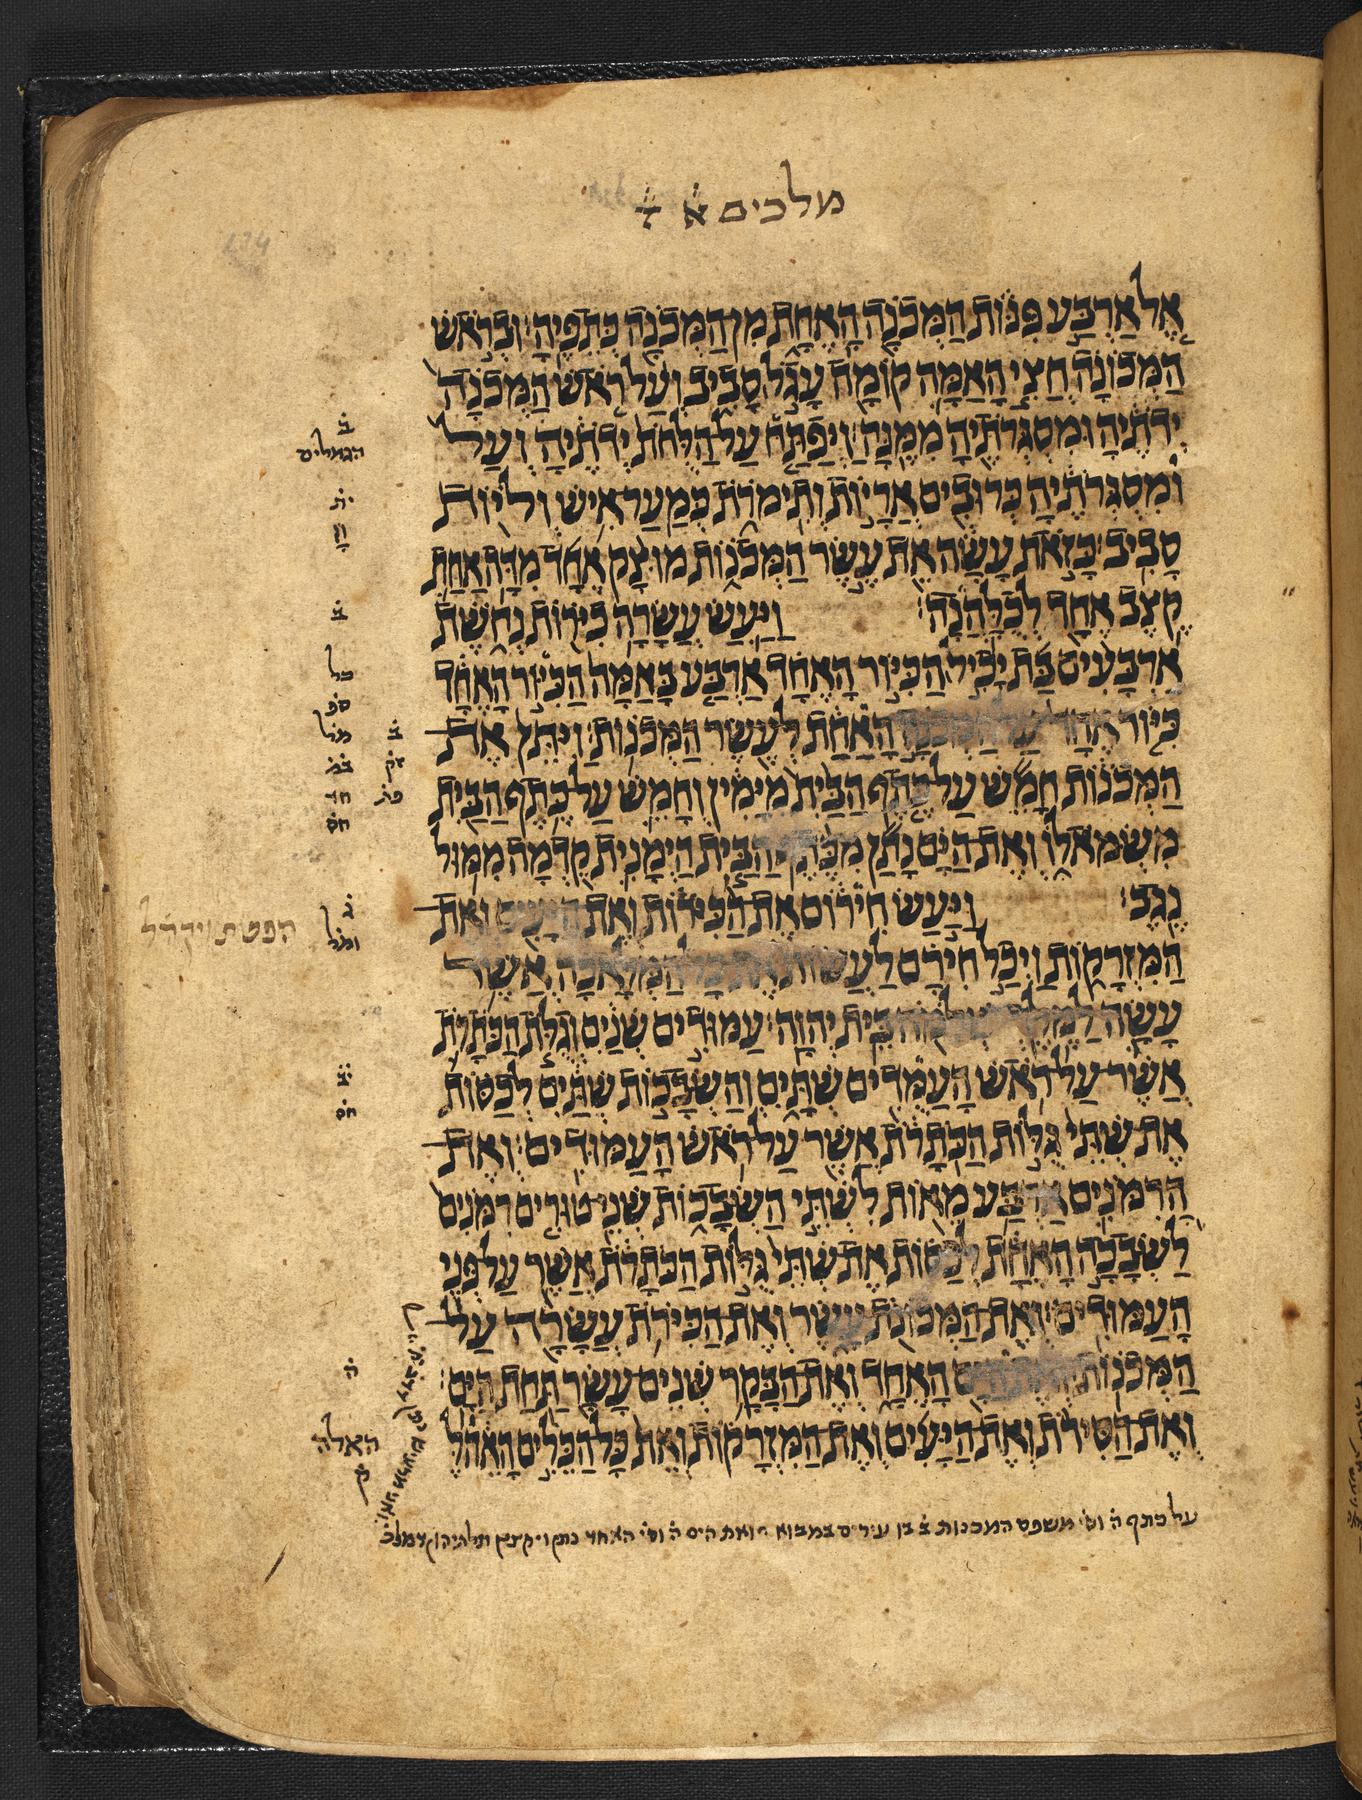 מלכים א ז
אֶל אַרְבַּע פִּנּוֹת הַמְּכֹנָה הָאֶחָת מִן הַמְּכֹנָה כְּתֵפֶיהָ׃ וּבְרֹאשׁ
הַמְּכוֹנָה חֲצִי הָאַמָּה קוֹמָה עָגֹל סָבִיב וְעַל רֹאשׁ הַמְּכֹנָה
יְדֹתֶיהָ וּמִסְגְּרֹתֶיהָ מִמֶּנָּה׃ וַיְפַתַּח עַל הַלֻּחֹת יְדֹתֶיהָ וְעַל
וּמִסְגְּרֹתֶיהָ כְּרוּבִים אֲרָיוֹת וְתִימֹרֹת כְּמַעַר אִישׁ וְלֹיוֹת
סָבִיב׃ כָּזֹאת עָשָׂה אֵת עֶשֶׂר הַמְּכֹנוֹת מוּצָק אֶחָד מִדָּה אַחַת
קֶצֶב אֶחָד לְכֻלָּהְנָה׃ וַיַּעַשׂ עֲשָׂרָה כִיֹּרוֹת נְחֹשֶׁת
אַרְבָּעִים בַּת יָכִיל הַכִּיּוֹר הָאֶחָד אַרְבַּע בָּאַמָּה הַכִּיּוֹר הָאֶחָד
כִּיּוֹר אֶחָד עַל הַמְּכֹנָה הָאַחַת לְעֶשֶׂר הַמְּכֹנוֹת׃ וַיִּתֵּן אֶת
הַמְּכֹנוֹת חָמֵשׁ עַל כֶּתֶף הַבַּיִת מִיָּמִין וְחָמֵשׁ עַל כֶּתֶף הַבַּיִת
מִשְּׂמֹאלוֹ וְאֶת הַיָּם נָתַן מִכֶּתֶף הַבַּיִת הַיְמָנִית קֵדְמָה מִמּוּל
נֶגֶב׃ וַיַּעַשׂ חִירוֹם אֶת הַכִּיֹּרוֹת וְאֶת הַיָּעִים וְאֶת
הַמִּזְרָקוֹת וַיְכַל חִירָם לַעֲשׂוֹת אֶת כָּל הַמְּלָאכָה אֲשֶׁר
עָשָׂה לַמֶּלֶךְ שְׁלֹמֹה בֵּית יְהוָה׃ עַמּוּדִים שְׁנַיִם וְגֻלֹּת הַכֹּתָרֹת
אֲשֶׁר עַל רֹאשׁ הָעַמֻּדִים שְׁתָּיִם וְהַשְּׂבָכוֹת שְׁתַּיִם לְכַסּוֹת
אֶת שְׁתֵּי גֻּלּוֹת הַכֹּתָרֹת אֲשֶׁר עַל רֹאשׁ הָעַמּוּדִים׃ וְאֶת
הָרִמֹּנִים אַרְבַּע מֵאוֹת לִשְׁתֵּי הַשְּׂבָכוֹת שְׁנֵי טוּרִים רִמֹּנִים
לַשְּׂבָכָה הָאֶחָת לְכַסּוֹת אֶת שְׁתֵּי גֻּלּוֹת הַכֹּתָרֹת אֲשֶׁר עַל פְּנֵי
הָעַמּוּדִים׃ וְאֶת הַמְּכֹנוֹת עָשֶׂר וְאֶת הַכִּיֹּרֹת עֲשָׂרָה עַל
הַמְּכֹנוֹת׃ וְאֶת הַיָּם הָאֶחָד וְאֶת הַבָּקָר שְׁנֵים עָשָׂר תַּחַת הַיָּם׃
וְאֶת הַסִּירֹת וְאֶת הַיָּעִים וְאֶת הַמִּזְרָקוֹת וְאֵת כָּל הַכֵּלִים הָאֹהֶל
ב
הגמלים
ב
כל
ב
ג
הפטת ויקהל
ה
האלה
ק